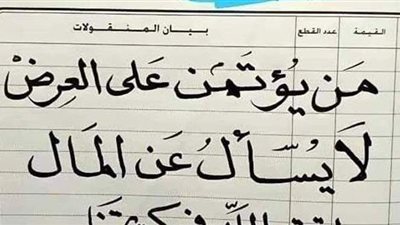 القيمة عدد القطع بيان المنقولات
مَن يُؤتَمَن عَلى العِرضْ
لَا يُسَّألُ عَن المَال